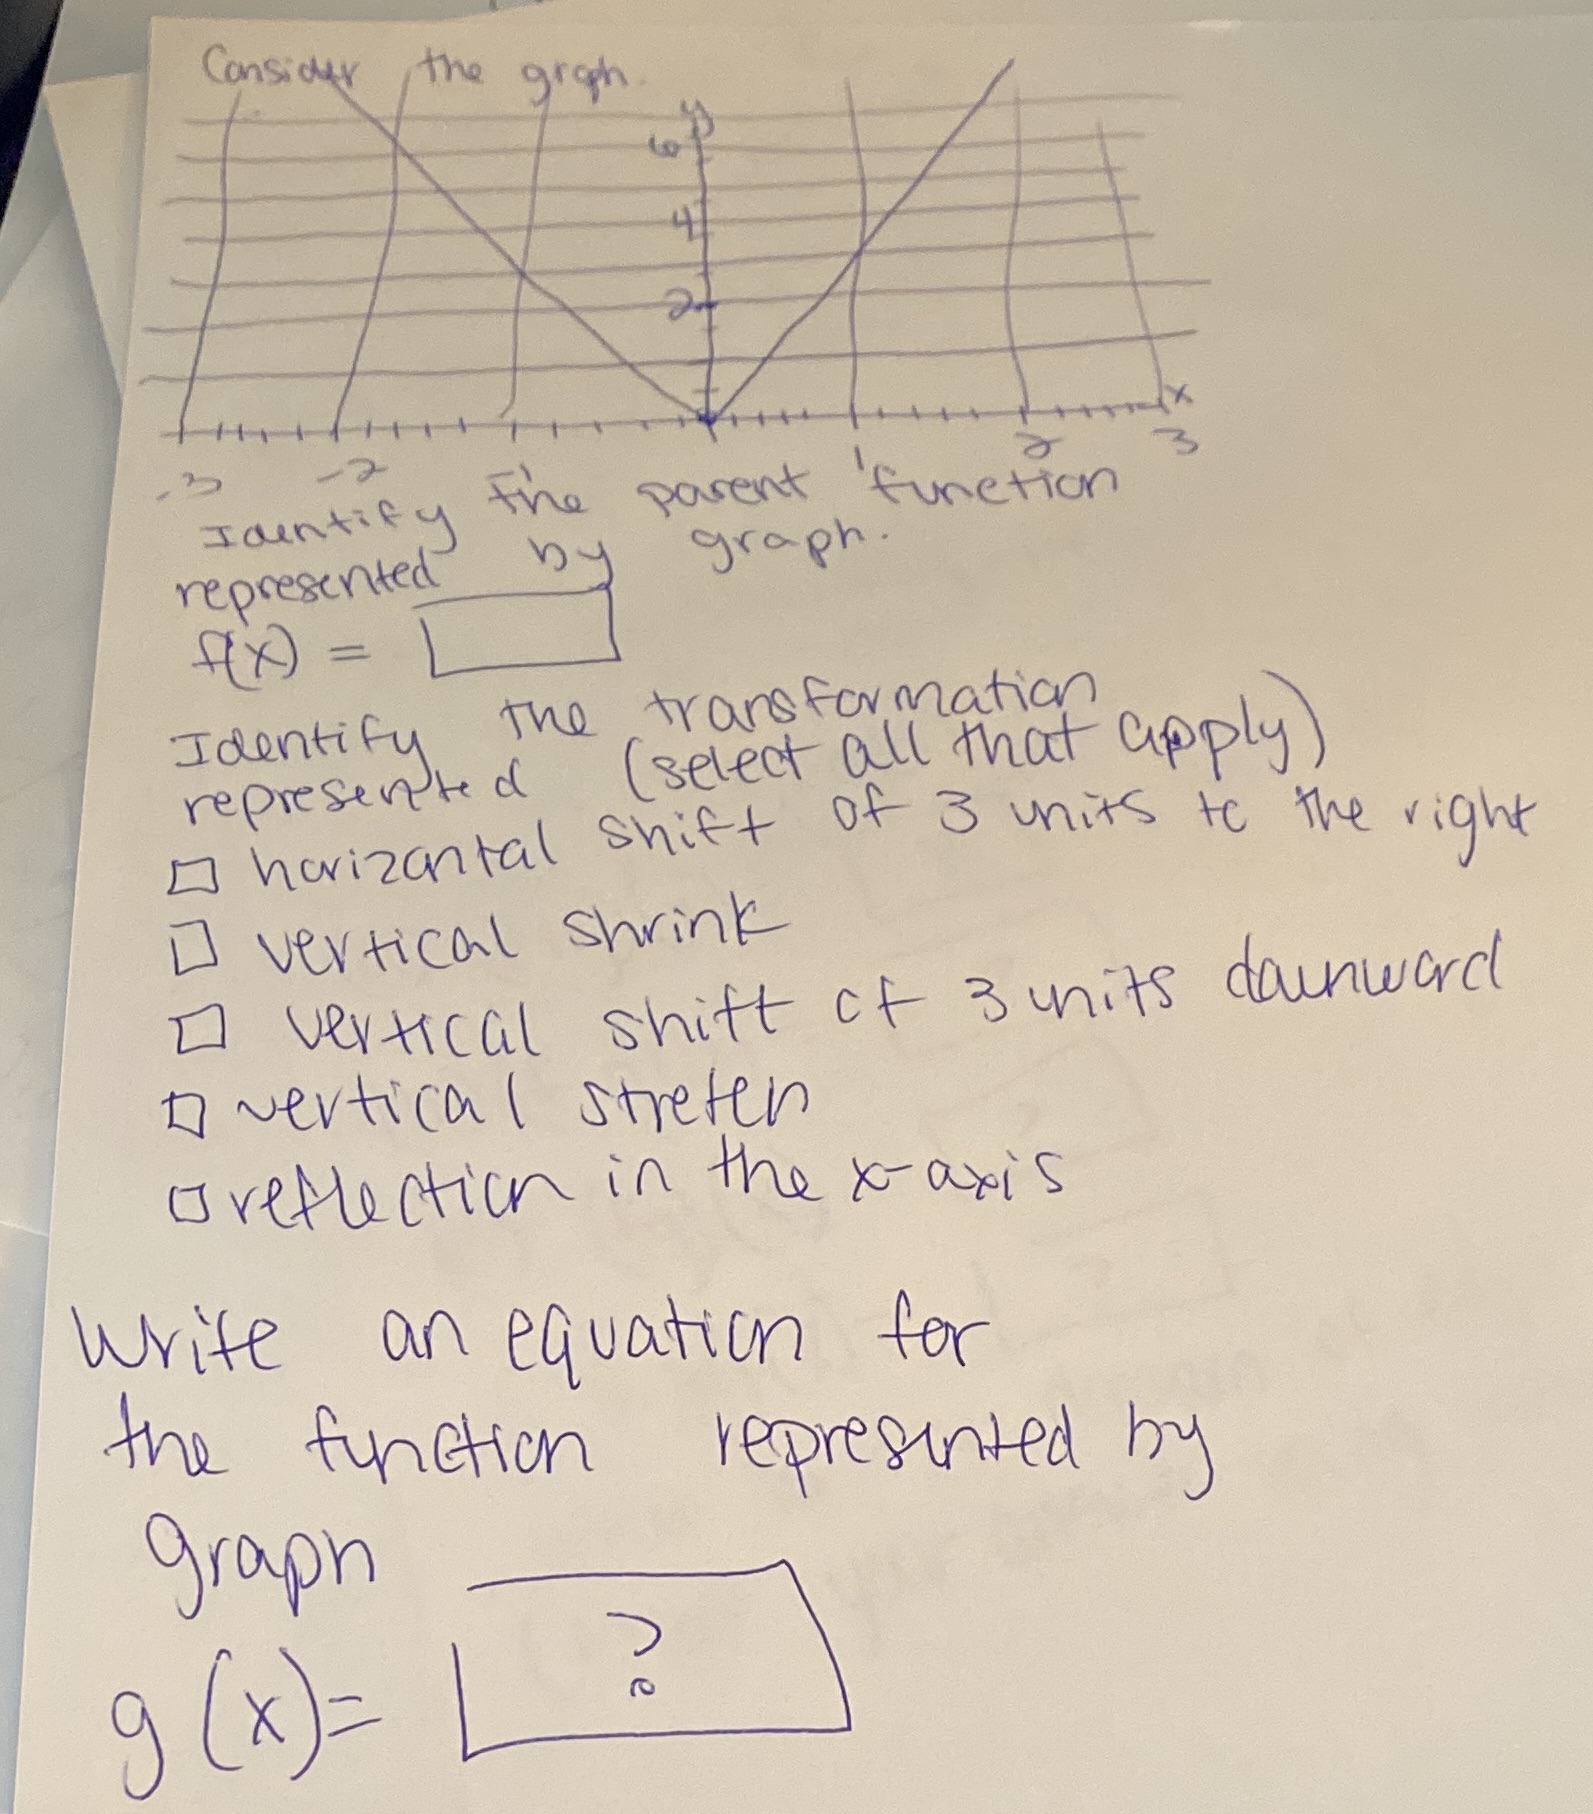 Consider the graph.
y
6
4
2
x
-3 -2 -1 1 2 3
Identify the parent function
represented by graph.
f(x) =
Identify the transformation
represented (select all that apply)
horizontal shift of 3 units to the right
vertical shrink
vertical shift of 3 units downward
vertical stretch
reflection in the x-axis
Write an equation for
the function represented by
graph
g(x)= ?